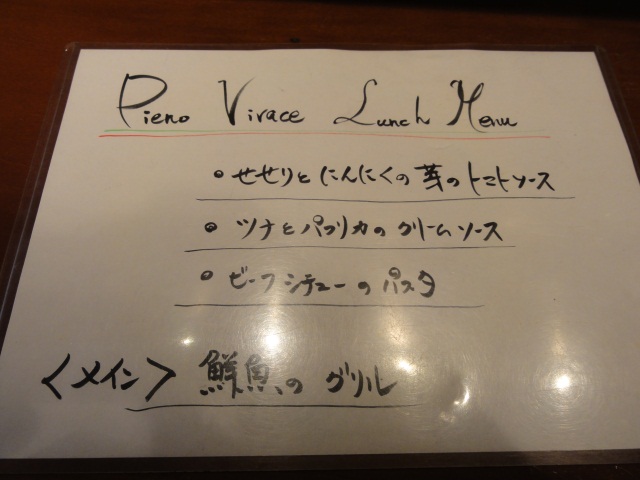 Pieno Vivace Lunch Menu
• せせりとにんにくの芽のトマトソース
• ツナとパプリカのクリームソース
• ビーフシチューのパスタ
<メイン> 鮮魚のグリル